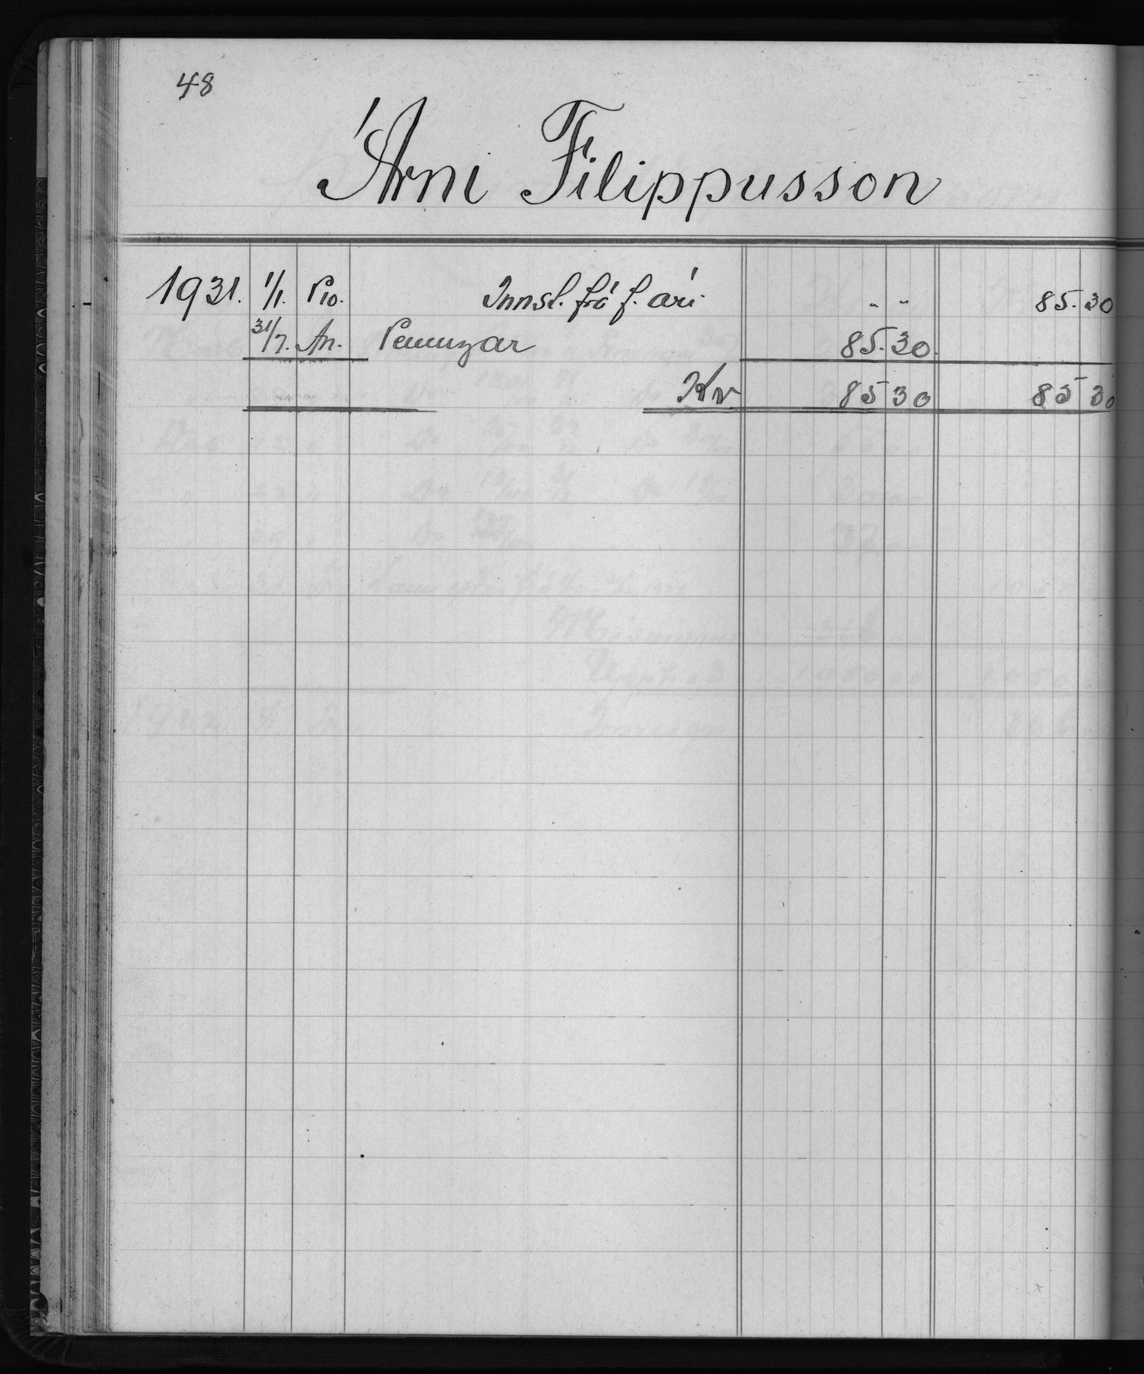 48
Árni Filippusson
1931. 1/1. Pio. Innst. frá f. ári. " " 85.30
31/7. An. Peningar 85.30
Kr 85 30 85 30